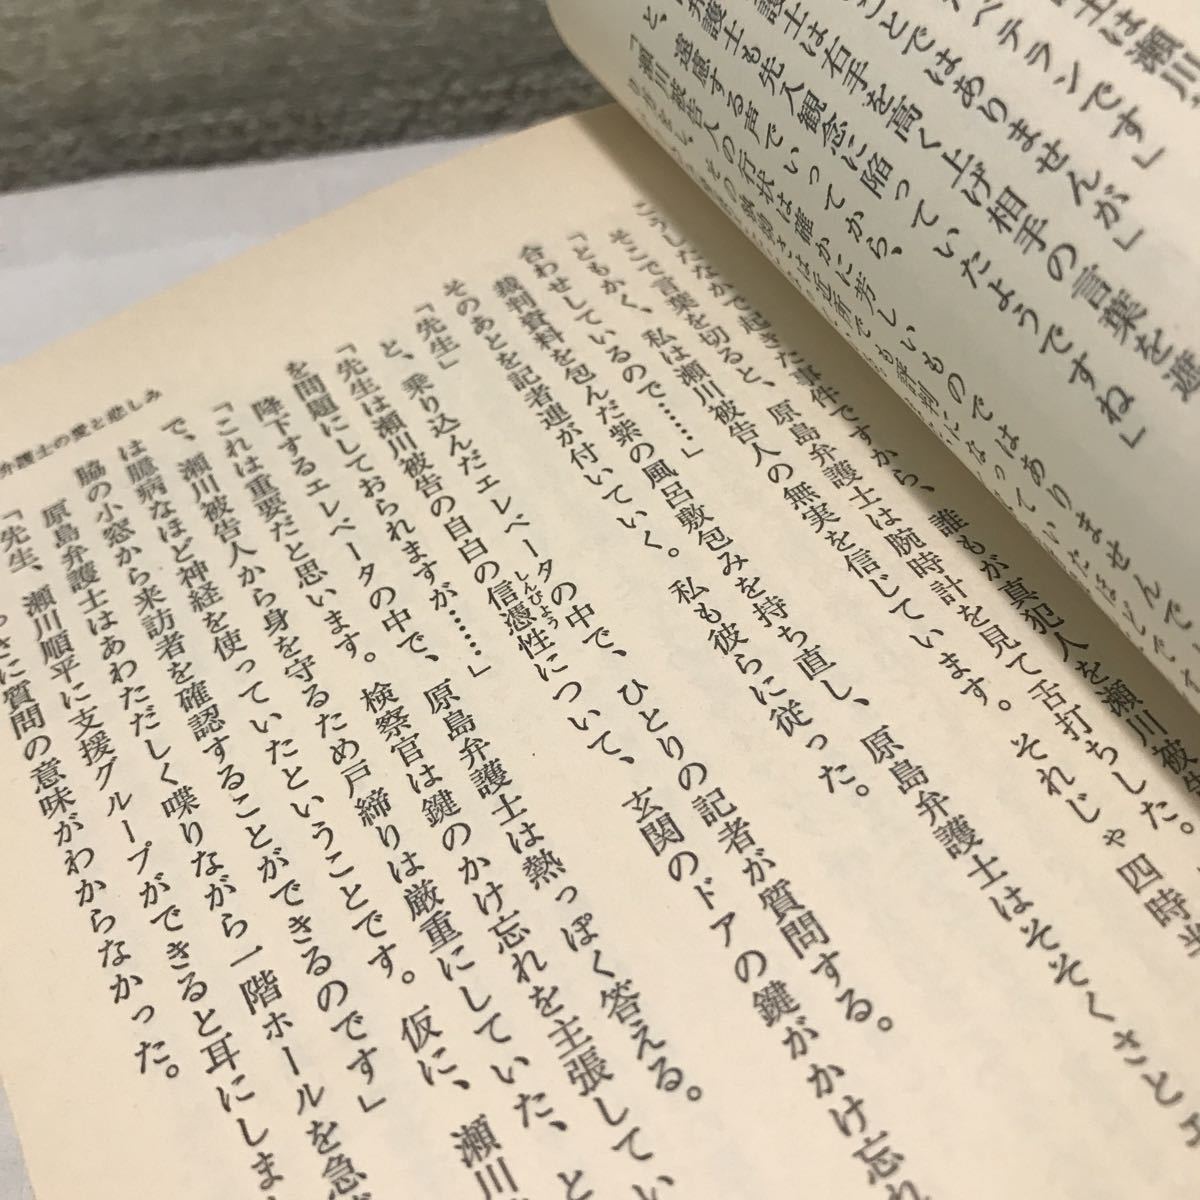 士は瀬川
ベテランです」
ことではありませんが」
護士は右手を高く上げ相手の言葉を遮
弁護士も先入観念に陥っていたようですね」
と、遠慮する声でいってから、
「瀬川被告人の行状は確かに芳しいものではありませんで
こうしたなかで起きた事件ですから、誰もが真犯人を瀬川被告
そこで言葉を切ると、原島弁護士は腕時計を見て舌打ちした。
「ともかく、私は瀬川被告人の無実を信じています。それじゃ四時半
合わせしているので……」
裁判資料を包んだ紫の風呂敷包みを持ち直し、原島弁護士はそそくさとエ
そのあとを記者連が付いていく。私も彼らに従った。
「先生」
と、乗り込んだエレベータの中で、ひとりの記者が質問する。
「先生は瀬川被告の自白の信憑性について、玄関のドアの鍵がかけ忘れ
しんぴょう
を問題にしておられますが……」
降下するエレベータの中で、原島弁護士は熱っぽく答える。
「これは重要だと思います。検察官は鍵のかけ忘れを主張してい
で、瀬川被告人から身を守るため戸締りは厳重にしていた、と
は臆病なほど神経を使っていたということです。仮に、瀬川
脇の小窓から来訪者を確認することができるのです」
原島弁護士はあわただしく喋りながら一階ホールを急
「先生、瀬川順平に支援グループができると耳にしま
さに質問の意味がわからなかった。
弁護士の愛と悲しみ